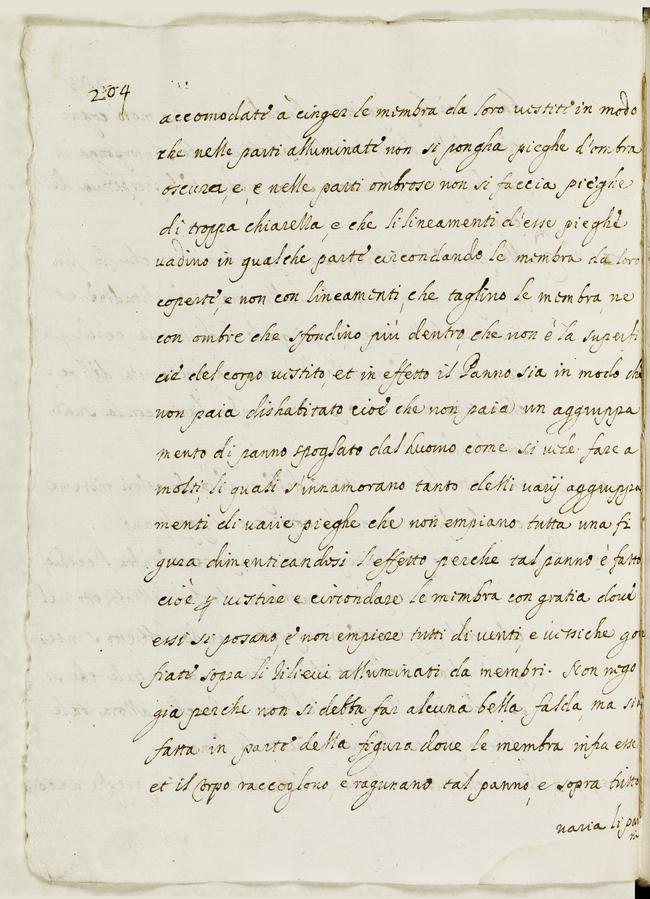 204
accomodate à cinger le membra da loro vestite in modo
che nelle parti alluminate non si pongha pieghe d'ombra
oscura, e, e nelle parti ombrose non si faccia pieghe
di troppa chiarella, e che li lineamenti d'esse pieghe
vadino in qualche parte circondando le membra da loro
coperte, e non con lineamenti, che taglino le membra, ne
con ombre che sfondino più dentro, che non è la superfi
cie del corpo vestito, et in effetto il Panno sia in modo che
non paia dishabitato cioè che non paia un aggruppa
mento di panno spogliato dal huomo come si vede fare a
molti, li quali s'innamorano tanto delli varij aggruppa
menti di varie pieghe che non empiano tutta una fi
gura dimenticandosi l'effetto perche tal panno è fatto
cioè p vestire e circondare le membra con gratia dove
essi si posano, e non empiere tutti di venti, e vessiche gon
fiate sopra li rilievi alluminati da membri. Non nego
già perche non si debba far alcuna bella falda, ma sia
fatta in parte della figura dove le membra infra esse
et il Corpo raccoglono, e ragunano tal panno, e sopra tutto
varia li pan
ni